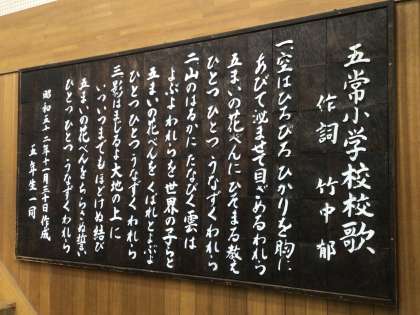 五常小学校校歌
作詞 竹中郁
一、空はひろびろ ひかりを胸に
あびて泌ませて目ざめるわれら
五まいの花べんにひそまる教え
ひとつ ひとつ うなずくわれら
二、山のはるかに たなびく雲は
よぶよ われらを世界の子らと
五まいの花べんを くばれとよぶよ
ひとつ ひとつ うなずくわれら
三、影はまじるよ 大地の上に
いついつまでもほどけぬ結び
五まいの花べんをちらさぬ誓い
ひとつ ひとつ うなずくわれら
昭和五十二年十一月三十日作成
五年生一同